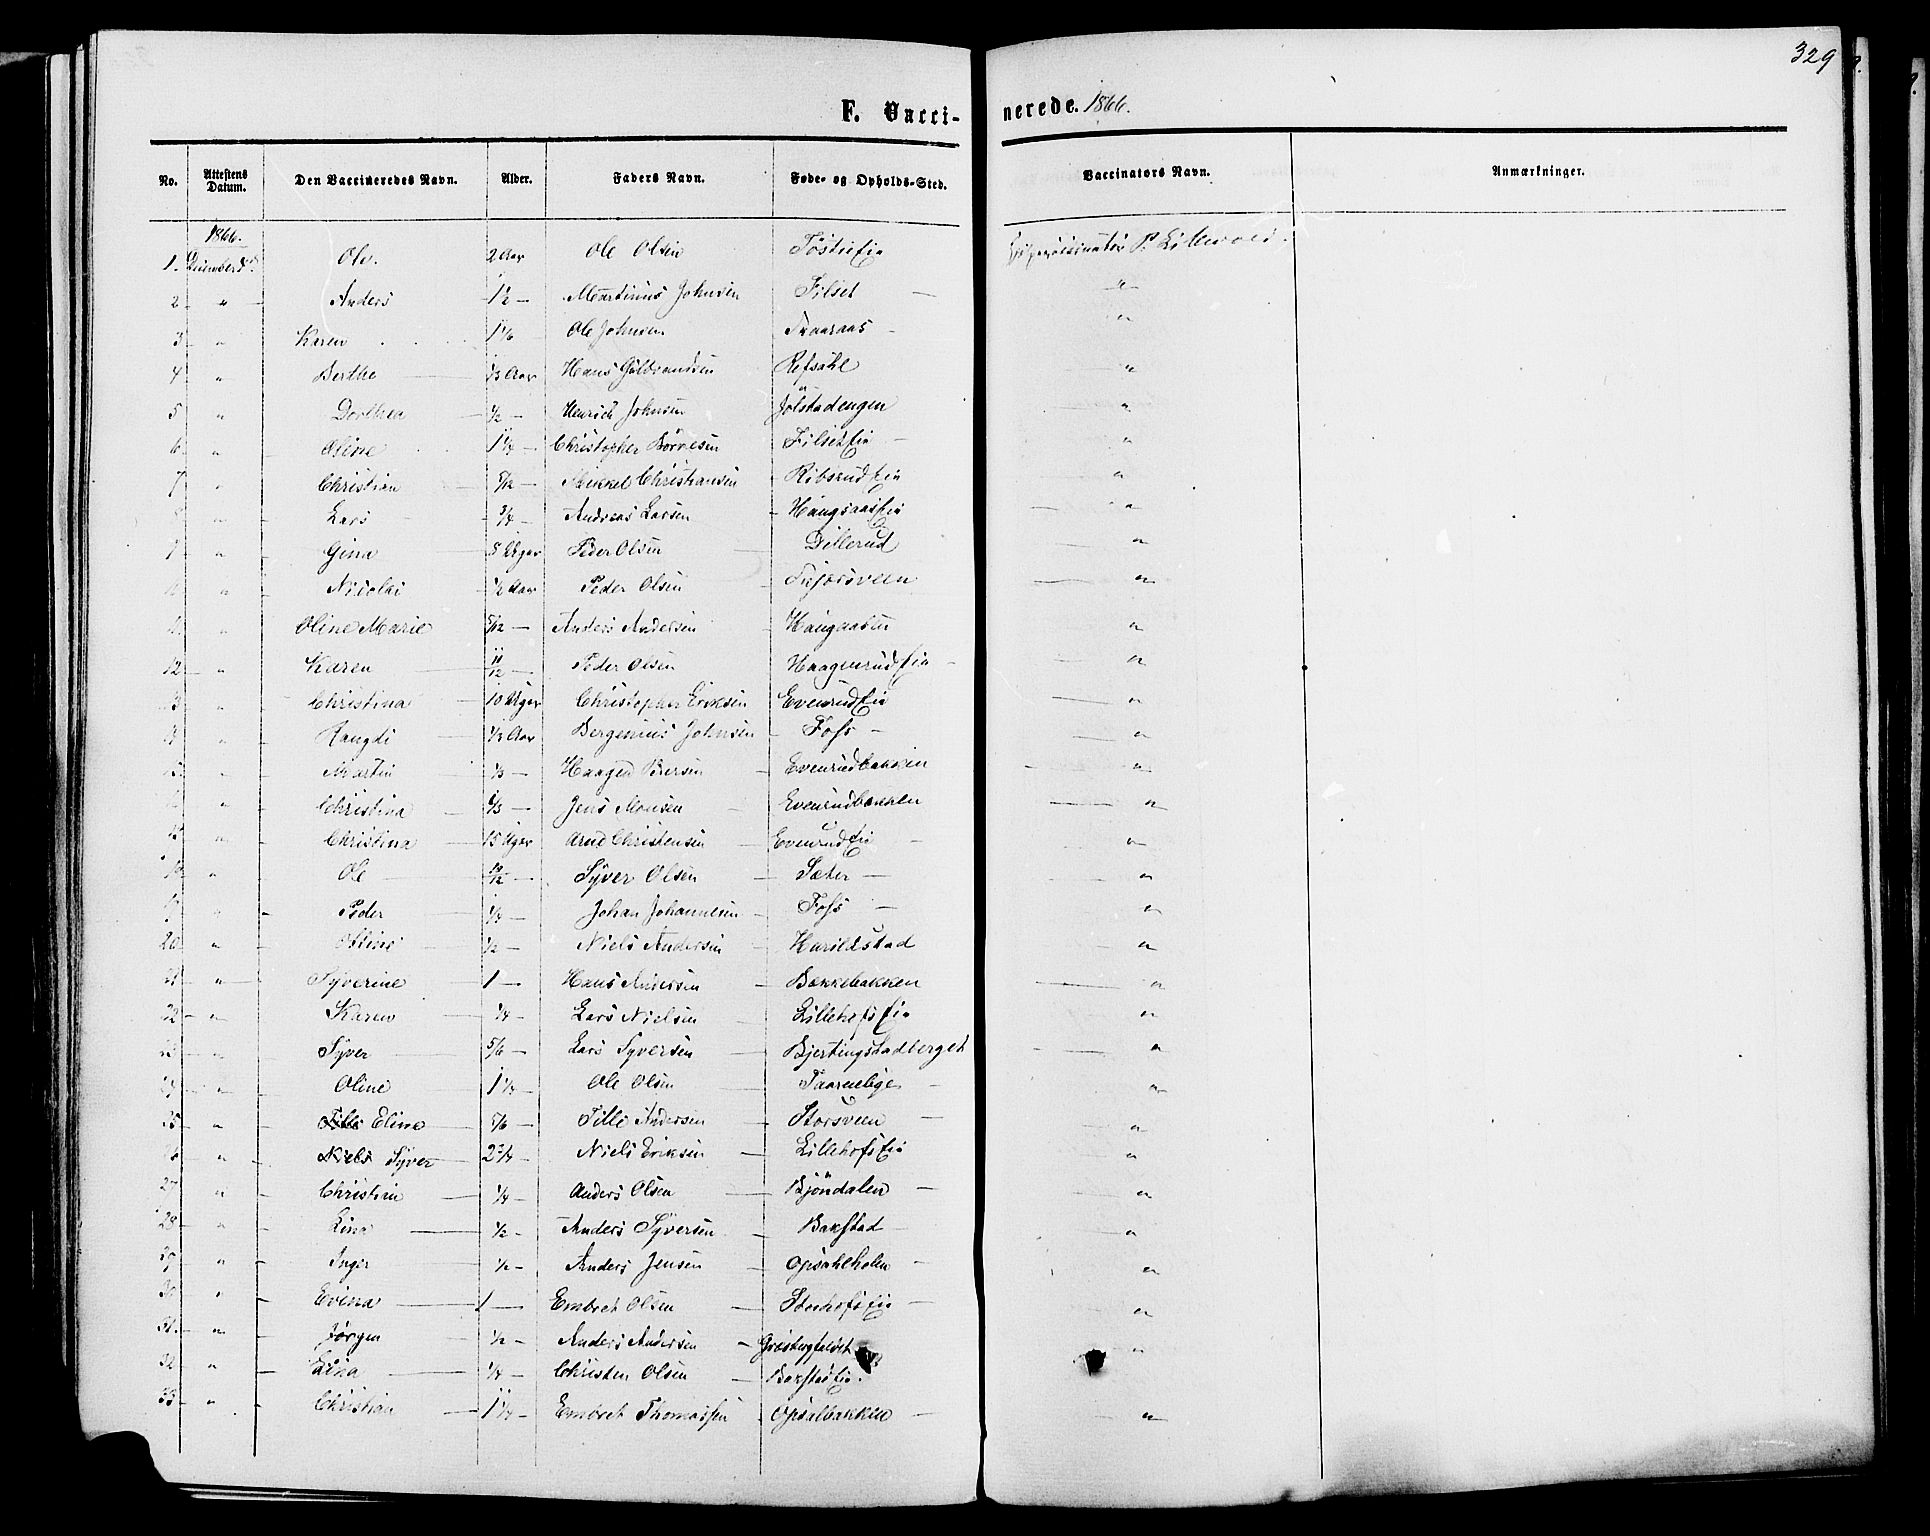 329
F. Vacci-
nerede. 1866.
No. Attestens Datum. Den Vaccineredes Navn. Alder. Faders Navn. Føde- og Opholds-Sted. Vaccinators Navn. Anmærkninger.
1866.
1. Ole. 2 Aar Ole Olsen
2 " Anders 1½ — Martinus Johnsen Filset — "
3 " Karen 1 1/6 Ole Johnsen "
4 " Berthe 1/3 Aar Hans Refsahl "
5 " Dorthea ½ — Henrich Johnsen Jølstadengen "
6 " Oline 1¼ — Christopher Filset Eie — "
7 " Christian — Mikkel Christiansen "
8 " Lars ¾ — Andreas Larsen Haugsaas Eie "
9 " Gina 5 Uger Peder Olsen Dillerud "
10 " Nicolai ½ Aar Peder Olsen "
11 " Oline Marie 5/12 — Anders Andersen "
12 " Karen 11/12 — Peder Olsen Haagenrud Eie — "
13 " Christina 10 Uger Christopher Eriksen Evenrud Eie "
14 " Rangdi 1/3 Aar Bergenius Johnsen Fofs — "
15 " Martin 1/3 — Haagen Evenrudbakken "
" Christina — Jens Monsen Evenrudbakken "
" Christina 15 Uger Arne Christensen Evenrud Eie — "
18 " Ole 10/12 — Syver Olsen Sæter — "
19 " Peder 1/3 — Johan Johannesen Fofs — "
20 " Olline ½ — Niels Andersen Harildstad "
21 " Syverine 1 — Hans Andersen Bækkebakken "
22 " Karen ¼ — Lars Nielsen Lillehofs Eie "
23 " Syver 5/6 — Lars Syversen Bjertingstadberget "
24 " Oline 1 1/3 — Ole Olsen "
25 " Eline 5/6 — Tille Andersen Storsveen — "
26 " Niels Syver 2¾ — Niels Eriksen Lillehofs Eie "
27 " Christine ¼ — Anders Olsen Bjöndalen — "
28 " Lina ½ — Anders Syversen Bakstad "
29 " Inger ½ — Anders Jensen Opsahlholen — "
30 " Evina 1 — Embret Olsen Storhofs Eie — "
31. " Jørgen ½ — Anders Andersen "
32 " Elina ¼ — Christen Olsen Bakstad Eie.
33 " Christian 1¼ — Embret Thomassen Opsalbakken — "